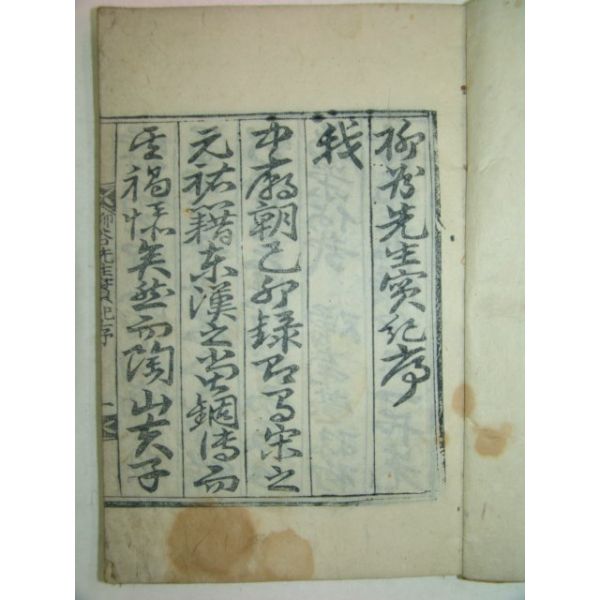 柳谷先生實紀序
我
中廟朝己卯錄即司馬宋之
元祐籍東漢之黨錮傳而
其禍慘矣然而陶山夫子
柳谷先生實紀序 一